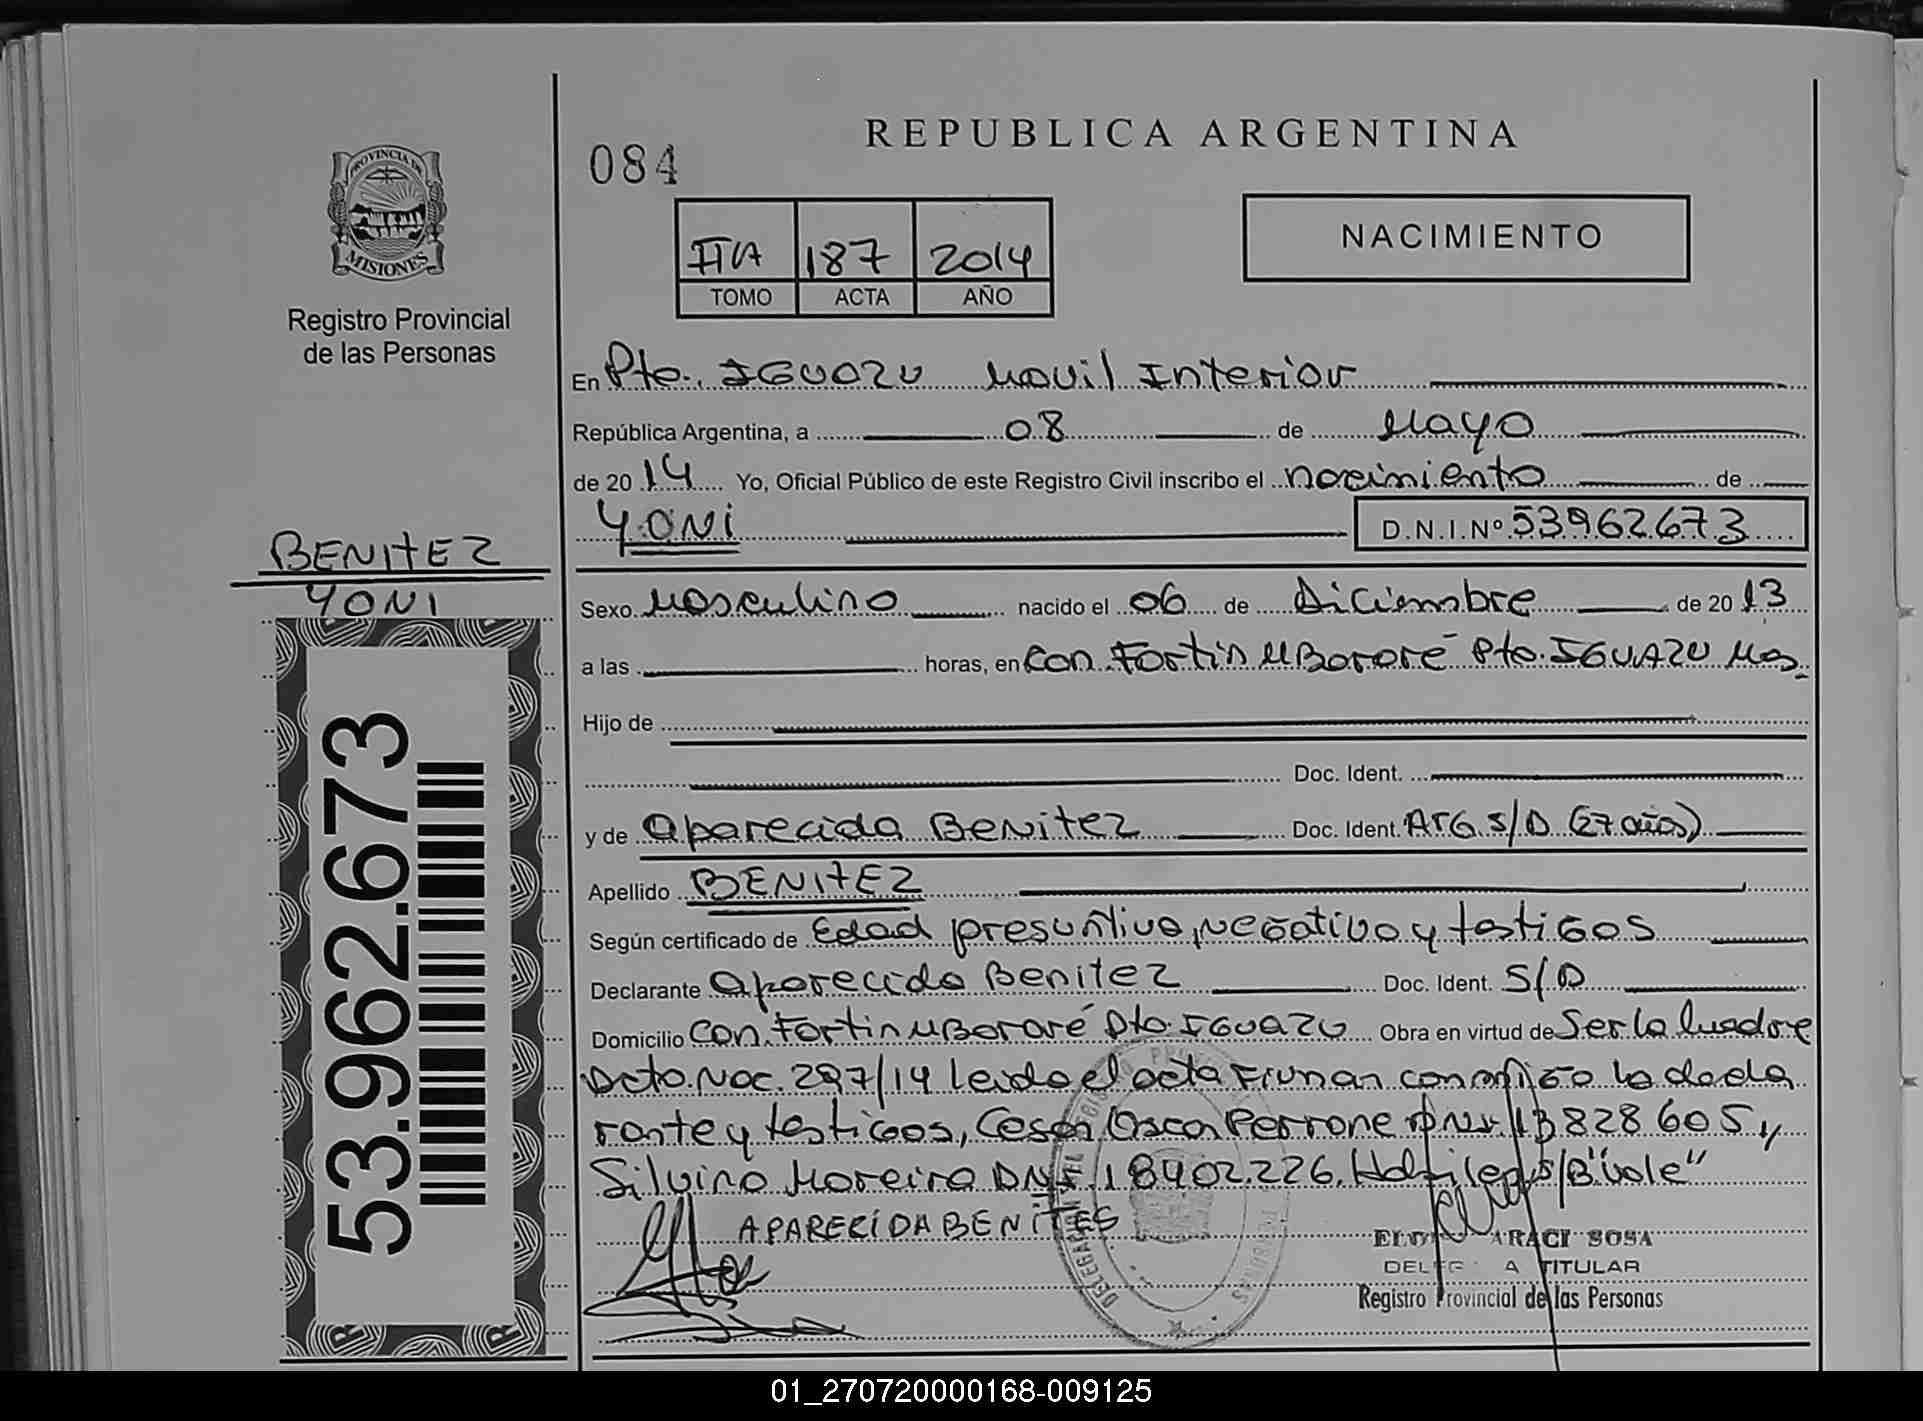 REPUBLICA ARGENTINA
084
PROVINCIA DE
MISIONES
Registro Provincial
de las Personas
187 2014
TOMO ACTA AÑO
NACIMIENTO
En Pto. IGUAZU Movil Interior
República Argentina, a 08 de Mayo
de 2014 Yo, Oficial Público de este Registro Civil inscribo el nacimiento de
YONI D.N.I.Nº 53962673
BENITEZ
YONI
53.962.673
Sexo Masculino nacido el 06 de Diciembre de 2013
a las horas, en Com. Fortin MBororé Pto. IGUAZU Mes.
Hijo de
Doc. Ident.
y de Aparecida Benitez Doc. Ident. ARG. S/D (27 años)
Apellido BENITEZ
Según certificado de Edad presuntiva, negativo y testigos
Declarante Aparecida Benitez Doc. Ident. S/D
Domicilio Com. Fortin MBororé Pto. IGUAZU Obra en virtud de Ser la
Dcto. Nac. 297/14 Leida el acta Firman conmigo la decla
rante y testigos, Cesar Oscar Perrone DNI 13828605 y
Silvino Moreira DNI 18402.226. S/B "Vale"
APARECIDA BENITES
ARACI SOSA
TITULAR
Registro Provincial de las Personas
01_270720000168-009125